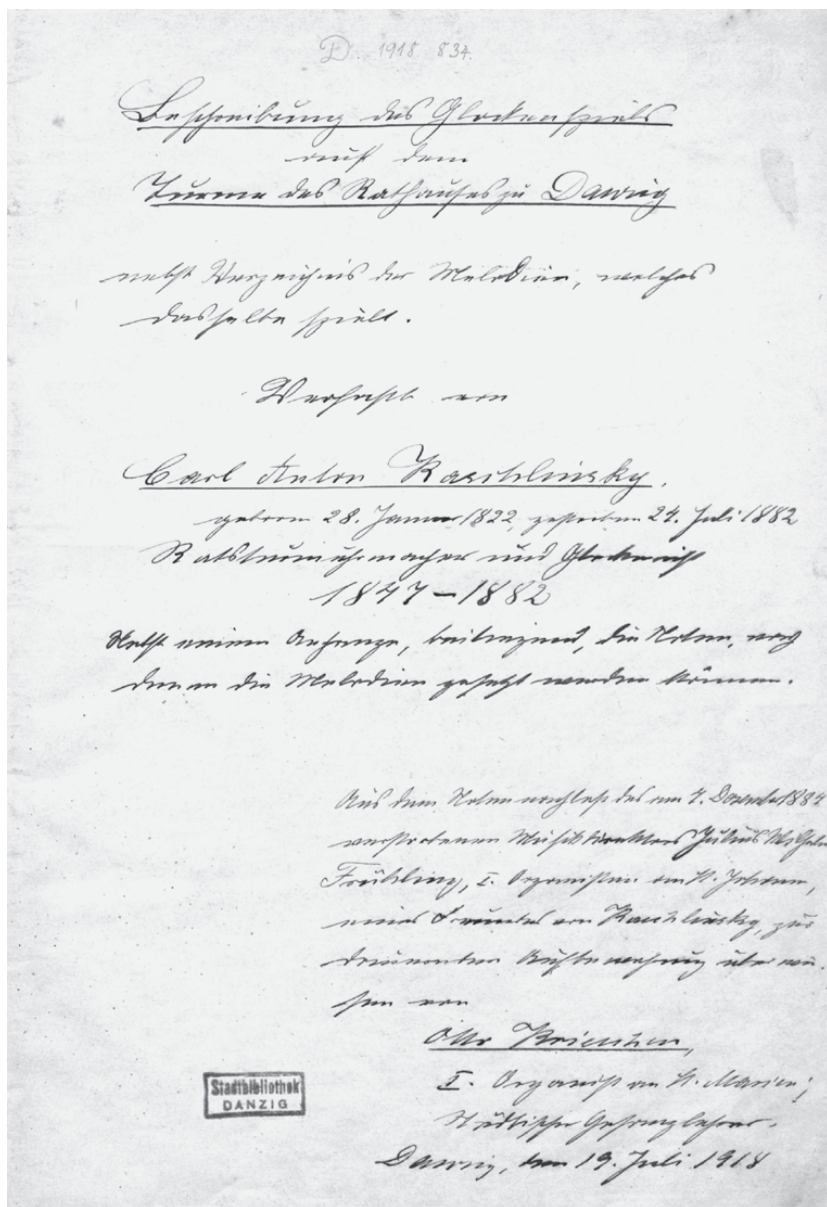 D. 1918 834.
Beschreibung des Glockenspiels
auf dem
Turme des Rathauses zu Danzig
nebst Verzeichnis der Melodien, welches
dasselbe spielt.
Verfaßt von
Carl Anton Kaschlinsky,
geboren 28. Januar 1822, gestorben 24. Juli 1882
Ratsturmuhrmacher und Glockenist
1847–1882
Nebst einem Anhange, beinhaltend, die Noten, nach
denen die Melodien gesetzt werden können.
Aus dem Noten nachlaß des am 7. Dezember 1884
verstorbenen Musikdirektors Julius Wilhelm
Frühling, I. Organisten an St. Johann,
eines Freundes von Kaschlinsky, zur
dauernden Aufbewahrung überwie-
sen von
Otto Krieschen,
I. Organist an St. Marien;
Städtischer Gesanglehrer.
Danzig, den 19. Juli 1918
Stadtbibliothek
DANZIG